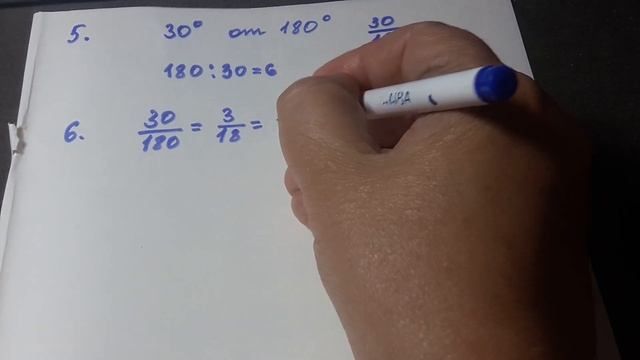 5. 30° от 180° 30/
180 : 30 = 6
6. 30/180 = 3/18 =